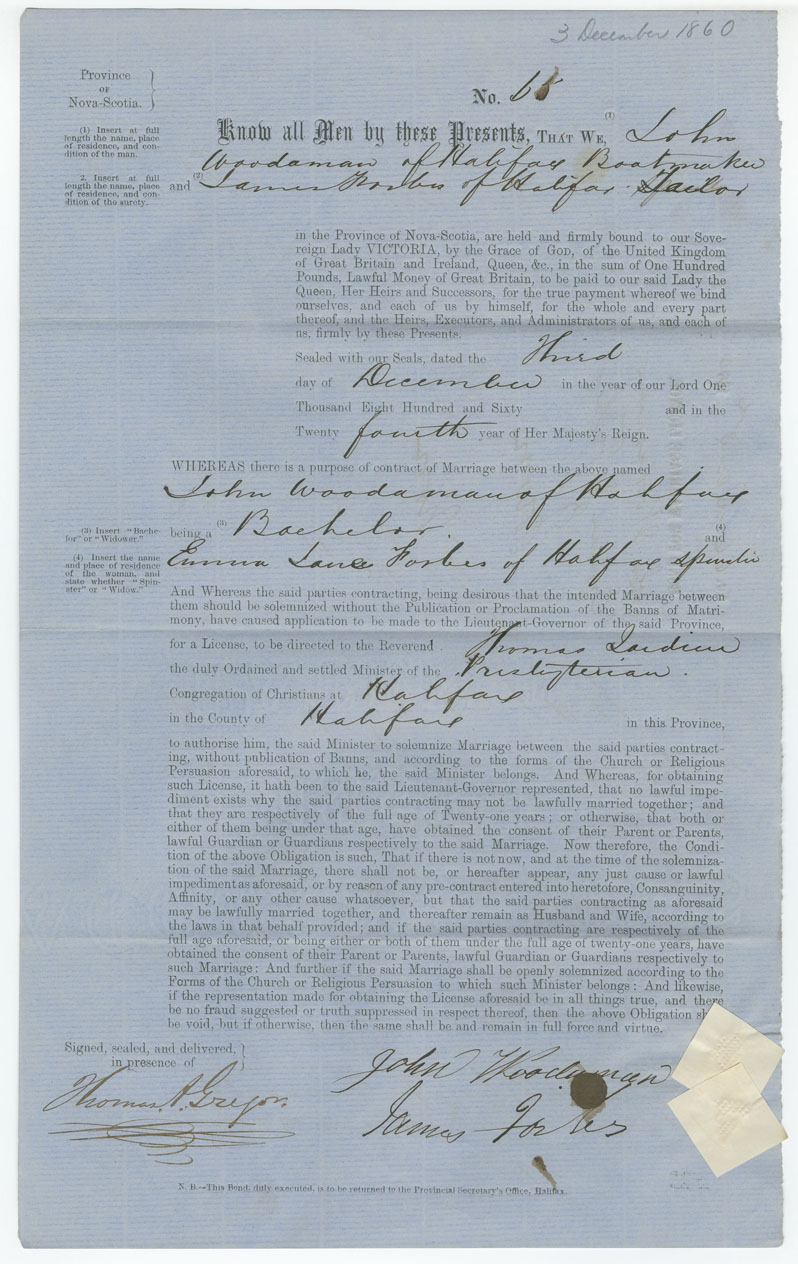 3 December 1860
Province
OF
Nova-Scotia.
No. 65
(1) Insert at full
length the name, place
of residence, and con-
dition of the man.
Know all Men by these Presents, THAT WE, (1) John
Woodaman of Halifax Bootmaker
2. Insert at full
length the name, place
of residence, and con-
dition of the surety.
and (2) James Forbes of Halifax Tailor
in the Province of Nova-Scotia, are held and firmly bound to our Sove-
reign Lady VICTORIA, by the Grace of GOD, of the United Kingdom
of Great Britain and Ireland, Queen, &c., in the sum of One Hundred
Pounds, Lawful Money of Great Britain, to be paid to our said Lady the
Queen, Her Heirs and Successors, for the true payment whereof we bind
ourselves, and each of us by himself, for the whole and every part
thereof, and the Heirs, Executors, and Administrators of us, and each of
us, firmly by these Presents.
Sealed with our Seals, dated the Third
day of December in the year of our Lord One
Thousand Eight Hundred and Sixty and in the
Twenty fourth year of Her Majesty's Reign.
WHEREAS there is a purpose of contract of Marriage between the above named
John Woodaman of Halifax
(3) Insert "Bache-
lor" or "Widower."
being a (3) Bachelor (4) and
(4) Insert the name
and place of residence
of the woman, and
state whether "Spin-
ster" or "Widow."
Emma Jane Forbes of Halifax spinster
And Whereas the said parties contracting, being desirous that the intended Marriage between
them should be solemnized without the Publication or Proclamation of the Banns of Matri-
mony, have caused application to be made to the Lieutenant-Governor of the said Province,
for a License, to be directed to the Reverend Thomas Jardine
the duly Ordained and settled Minister of the Presbyterian.
Congregation of Christians at Halifax
in the County of Halifax in this Province,
to authorise him, the said Minister to solemnize Marriage between the said parties contract-
ing, without publication of Banns, and according to the forms of the Church or Religious
Persuasion aforesaid, to which he, the said Minister belongs. And Whereas, for obtaining
such License, it hath been to the said Lieutenant-Governor represented, that no lawful impe-
diment exists why the said parties contracting may not be lawfully married together; and
that they are respectively of the full age of Twenty-one years; or otherwise, that both or
either of them being under that age, have obtained the consent of their Parent or Parents,
lawful Guardian or Guardians respectively to the said Marriage. Now therefore, the Condi-
tion of the above Obligation is such, That if there is not now, and at the time of the solemniza-
tion of the said Marriage, there shall not be, or hereafter appear, any just cause or lawful
impediment as aforesaid, or by reason of any pre-contract entered into heretofore, Consanguinity,
Affinity, or any other cause whatsoever, but that the said parties contracting as aforesaid
may be lawfully married together, and thereafter remain as Husband and Wife, according to
the laws in that behalf provided; and if the said parties contracting are respectively of the
full age aforesaid, or being either or both of them under the full age of twenty-one years, have
obtained the consent of their Parent or Parents, lawful Guardian or Guardians respectively to
such Marriage: And further if the said Marriage shall be openly solemnized according to the
Forms of the Church or Religious Persuasion to which such Minister belongs: And likewise,
if the representation made for obtaining the License aforesaid be in all things true, and there
be no fraud suggested or truth suppressed in respect thereof, then the above Obligation
be void, but if otherwise, then the same shall be and remain in full force and virtue.
Signed, sealed, and delivered,
in presence of
Thomas A. Gregor.
John Woodaman
James Forbes
N. B.—This Bond, duly executed, is to be returned to the Provincial Secretary's Office, Halifax.